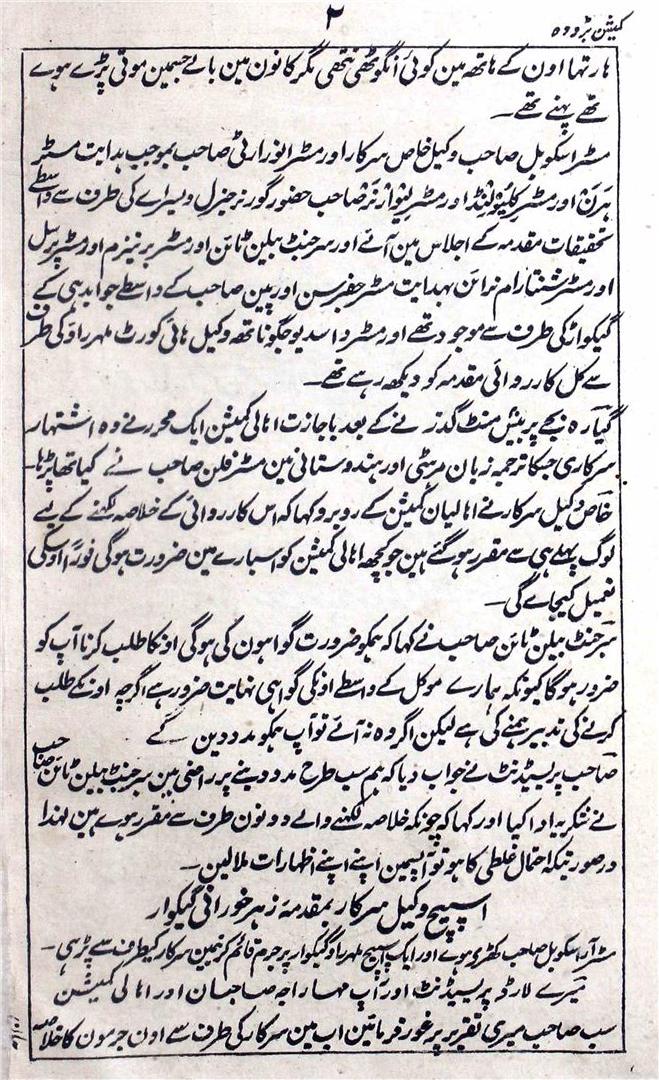 ۲
کمیشن بڑودہ
ہار تھا اون کے ہاتھ مین کوئی انگوٹھی نتھی مگر کانون مین بالے جسمین موتی پڑے ہوے
تھے پہنے تھے۔
مسٹر اسکوبل صاحب وکیل خاص سرکار اور مسٹر انورارٹی صاحب بموجب ہدایت مسٹر
ہرن اور مسٹر کلیولینڈ اور مسٹر صاحب حضور گورنر جنرل ویسراے کی طرف سے واسطے
تحقیقات مقدمہ کے اجلاس مین آئے اور سرجنٹ بیلن ٹائن اور مسٹر برنیزم اور مسٹر پرسل
اور مسٹر شنتارام نراین بہدایت مسٹر جفرسن اور پین صاحب کے واسطے جوابدہی کے
گیکواڑ کی طرف سے موجود تھے اور مسٹر واسدیو جگوناتھ وکیل ہائی کورٹ ملہرراؤ کی طرف
سے کل کارروائی مقدمہ کو دیکھ رہے تھے۔
گیارہ بجے پر بیس منٹ گذرنے کے بعد باجازت اہالی کمیشن ایک محرر نے وہ اشتہار
سرکاری جسکا ترجمہ زبان مرہٹی اور ہندوستانی مین مسٹر فلن صاحب نے کیا تھا پڑہا۔
خاص وکیل سرکار نے اہالیان کمیشن کے روبرو کہا کہ اس کارروائی کے خلاصہ لکھنے کے لیے
لوگ پہلے ہی سے مقرر ہوگئے ہین جو کچھ اہالی کمیشن کو اسبارے مین ضرورت ہوگی فوراً اوسکی
تعمیل کیجاے گی۔
سرجنٹ بیلن ٹائن صاحب نے کہا کہ ہمکو ضرورت گواہون کی ہوگی اونکا طلب کرنا آپ کو
ضرور ہوگا کیونکہ ہمارے موکل کے واسطے اونکی گواہی نہایت ضرور ہے اگرچہ اونکے طلب
کرنے کی تدبیر ہمنے کی ہے لیکن اگر وہ نہ آئے تو آپ ہمکو مدد دین گے
صاحب پریسیڈنٹ نے جواب دیا کہ ہم سب طرح مدد دینے پر راضی ہین سرجنٹ بیلن ٹائن صاحب
نے شکریہ ادا کیا اور کہا کہ چونکہ خلاصہ لکھنے والے دونون طرف سے مقرر ہوے ہین لہذا
درصورتیکہ احتمال غلطی کا ہو تو آپسمین اپنے اپنے اظہارات ملالین۔
اسپیچ وکیل سرکار بمقدمہ زہر خورانی گیکوار
مسٹر آر اسکوبل صاحب کھڑی ہوے اور ایک اسپیچ ملہرراؤ گیکوار پر جرم قائم کرنیمین سرکار کیطرف سے پڑہی۔
میرے لارڈ پریسیڈنٹ اور آپ مہاراجہ صاحبان اور اہالی کمیشن
سب صاحب میری تقریر پر غور فرمائین اب مین سرکار کی طرف سے اون جرمون کا خلاصہ